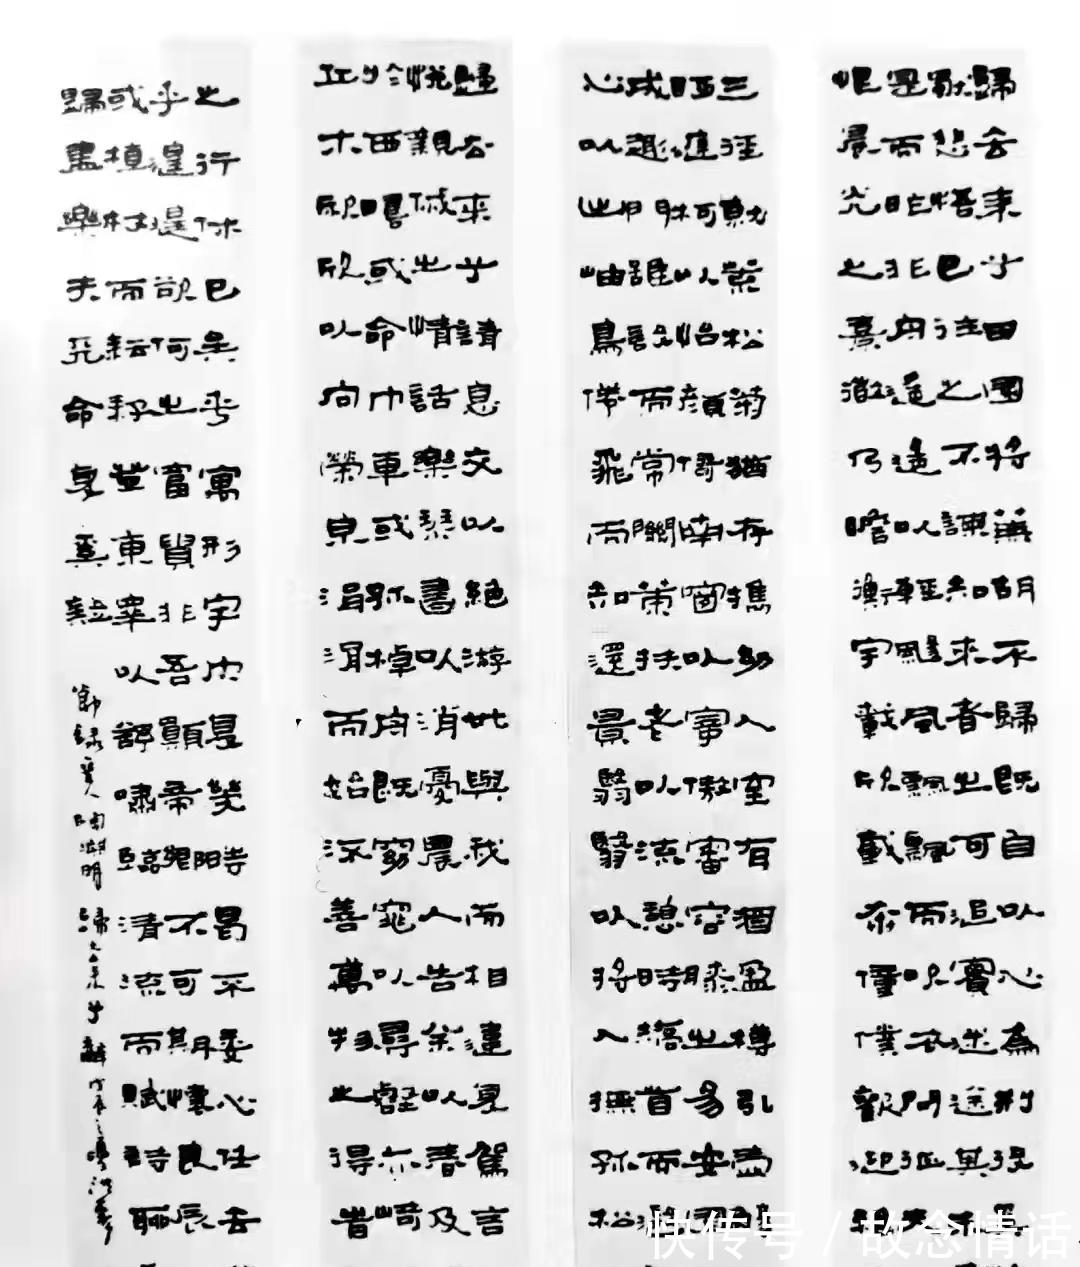 歸去來兮田園將蕪胡不歸既自以心為形役奚
獨悲悟已往之不諫知來者之可追實迷途其未
是而昨非舟遙遙以輕颺風飄飄而吹衣問征夫
恨晨光之熹微乃瞻衡宇載欣載奔僮僕歡迎稚
三徑就荒松菊猶存攜幼入室有酒盈樽引壺觴
眄庭柯以怡顏倚南窗以寄傲審容膝之易安園
成趣門雖設而常關策扶老以流憩時矯首而遐
心以出岫鳥倦飛而知還景翳翳以將入撫孤松
歸去來兮請息交以絕游世與我而相違復駕言
悅親戚之情話樂琴書以消憂農人告余以春及
於西疇或命巾車或孤棹舟既窈窕以尋壑亦崎
木欣欣以向榮泉涓涓而始流善萬物之得時
之行休已矣乎寓形宇內復幾時曷不委心任去
乎遑遑欲何之富貴非吾願帝鄉不可期懷良辰
或植杖而耘耔登東皋以舒嘯臨清流而賦詩聊
歸盡樂夫天命復奚疑
節錄晉人陶淵明歸去來兮辭
快传号/故念情话